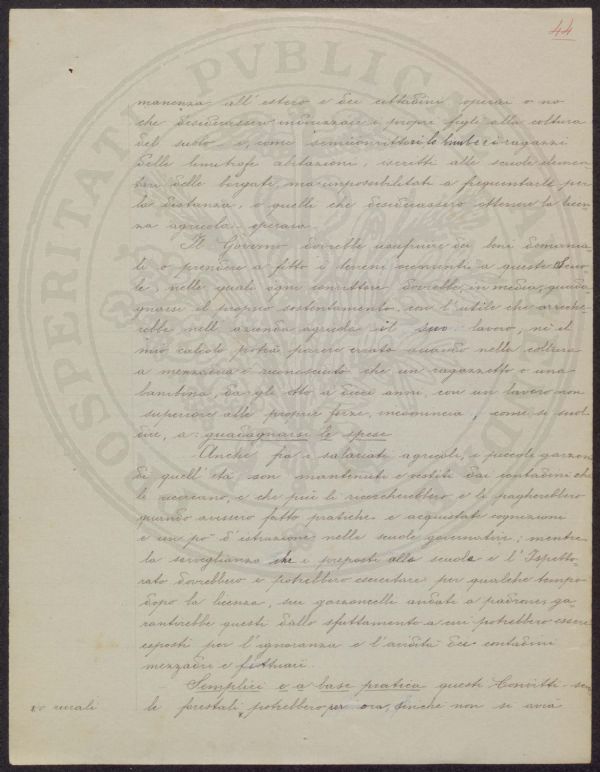 44
manenza all'estero e dei cittadini operai o no
che desiderassero indirizzare i propri figli alla coltura
del suolo e, come semiconvittori le bimbe e i ragazzi
delle limitrofe abitazioni, iscritti alle scuole elemen-
tari delle borgate, ma impossibilitati a frequentarle per
la distanza, o quelle che desiderassero ottenere la licen-
za agricola operaia.
Il Governo dovrebbe usufruire dei beni demania-
li o prendere a fitto i terreni occorrenti a queste Scuo-
le, nelle quali ogni convittore dovrebbe, in media, guada-
gnarsi il proprio sostentamento, con l'utile che arreche-
rebbe nell'azienda agricola il suo lavoro, nè il
mio calcolo potrà parere errato quando nella coltura
a mezzadria è riconosciuto che un ragazzetto o una
bambina, dagli otto a dieci anni, con un lavoro non
superiore alle proprie forze, incomincia, come si suol
dire, a guadagnarsi le spese.
Anche fra i salariati agricoli, i piccoli garzoni
di quell'età, son mantenuti e vestiti dai contadini che
li ricercano, e che più li ricercherebbero e li pagherebbero
quando avessero fatto pratiche e acquistate cognizioni
e un po' d'istruzione nelle scuole governative; mentre
la sorveglianza che i preposti alla scuola e l'Ispetto-
rato dovrebbero e potrebbero esercitare per qualche tempo
dopo la licenza, sui garzoncelli andati a padrone, ga-
rantirebbe questi dallo sfruttamento a cui potrebbero essere
esposti per l'ignoranza e l'avidità dei contadini
mezzadri e fittuari.
Semplici e a base pratica questi Convitti-scuo-
le forestali, potrebbero per ora, finchè non si avrà
o rurali